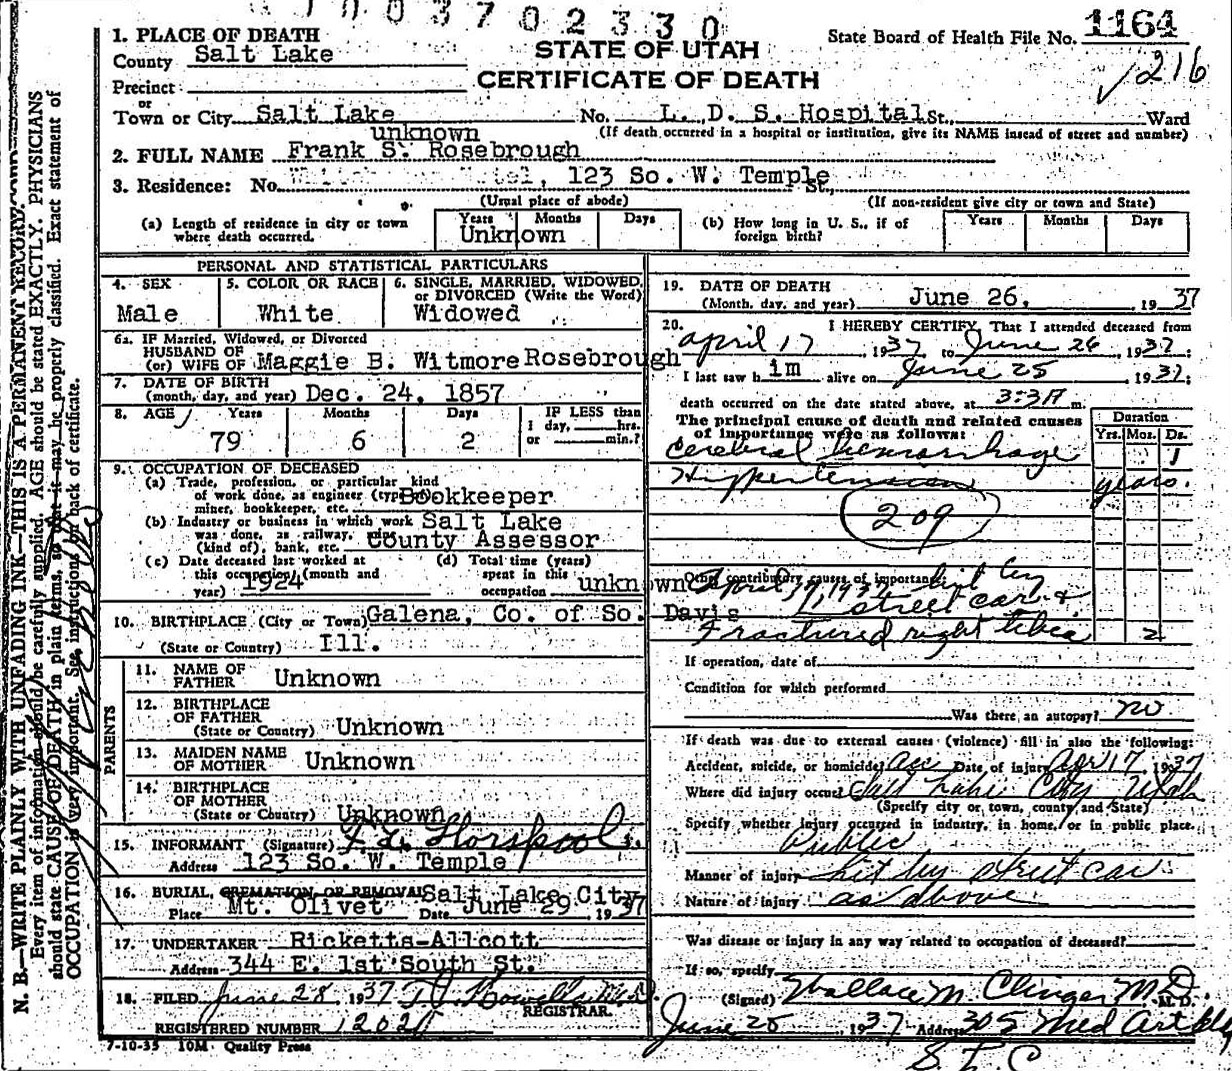 1003702330
1. PLACE OF DEATH
County Salt Lake
STATE OF UTAH
CERTIFICATE OF DEATH
State Board of Health File No. 1164
216
Precinct
or
Town or City Salt Lake No. L. D. S. Hospital St., Ward
unknown
(If death occurred in a hospital or institution, give its NAME instead of street and number)
2. FULL NAME Frank S. Rosebrough
3. Residence: No. 123 So. W. Temple St.,
(Usual place of abode) (If non-resident give city or town and State)
(a) Length of residence in city or town where death occurred. Years Months Days
Unknown
(b) How long in U. S., if of foreign birth? Years Months Days
PERSONAL AND STATISTICAL PARTICULARS
4. SEX
Male
5. COLOR OR RACE
White
6. SINGLE, MARRIED, WIDOWED, or DIVORCED (Write the Word)
Widowed
6a. IF Married, Widowed, or Divorced
HUSBAND OF
(or) WIFE OF Maggie B. Witmore Rosebrough
7. DATE OF BIRTH
(month, day, and year) Dec. 24, 1857
8. AGE Years Months Days IF LESS than
79 6 2
1 day, hrs.
or min.?
9. OCCUPATION OF DECEASED
(a) Trade, profession, or particular kind
of work done, as engineer (type of) Bookkeeper
miner, bookkeeper, etc.
(b) Industry or business in which work Salt Lake
was done, as railway, mine
(kind of), bank, etc. County Assessor
(c) Date deceased last worked at
this occupation (month and
year) 1924
(d) Total time (years)
spent in this
occupation unknown
10. BIRTHPLACE (City or Town) Galena, Co. of So. Davis
(State or Country) Ill.
PARENTS
11. NAME OF
FATHER Unknown
12. BIRTHPLACE
OF FATHER
(State or Country) Unknown
13. MAIDEN NAME
OF MOTHER Unknown
14. BIRTHPLACE
OF MOTHER
(State or Country) Unknown
15. INFORMANT (Signature)
Address 123 So. W. Temple
16. BURIAL, CREMATION OR REMOVAL Salt Lake City
Place Mt. Olivet Date June 29 1937
17. UNDERTAKER Ricketts-Allcott
Address 344 E. 1st South St.
18. FILED June 28, 1937 M.D.
REGISTRAR.
REGISTERED NUMBER
7-10-35 10M. Quality Press
19. DATE OF DEATH
(Month, day, and year) June 26, 1937
20. I HEREBY CERTIFY, That I attended deceased from
April 17 1937 to June 26 1937;
I last saw him alive on June 25, 1937;
death occurred on the date stated above, at 3:3 A m.
The principal cause of death and related causes
of importance were as follows:
Duration
Yrs. Mos. Ds.
Cerebral hemorrhage 1
Hypertension years.
209
Other contributory causes of importance
April 17, 1937 hit by
street car &
Fractured right tibia 2
If operation, date of
Condition for which performed
Was there an autopsy? no
If death was due to external causes (violence) fill in also the following:
Accident, suicide, or homicide? Acc Date of injury Apr 17 1937
Where did injury occur? Salt Lake City Utah
(Specify city or town, county and State)
Specify whether injury occurred in industry, in home, or in public place.
Public
Manner of injury hit by street car
Nature of injury as above
Was disease or injury in any way related to occupation of deceased?
If so, specify
(Signed) Wallace M. Clinger M D M. D.
June 28, 1937 Address 305 Med Art Bldg
S. L. C
N. B.—WRITE PLAINLY WITH UNFADING INK—THIS IS A PERMANENT RECORD.
Every item of information should be carefully supplied. AGE should be stated EXACTLY. PHYSICIANS
should state CAUSE OF DEATH in plain terms, so that it may be properly classified. Exact statement of
OCCUPATION is very important. See instructions on back of certificate.